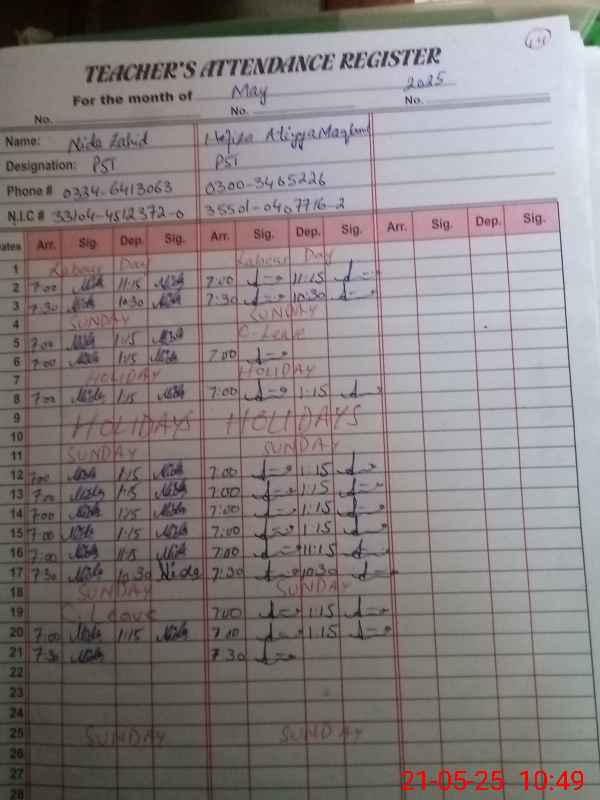 TEACHER'S ATTENDANCE REGISTER
For the month of May 2025
No. No. No.
Name: Nida Zahid
Designation: PST PST
Phone # 0324-6413063 0300-3465226
N.I.C # 33104-4512372-0 35501-0407716-2
Dates Arr. Sig. Dep. Sig. Arr. Sig. Dep. Sig. Arr. Sig. Dep. Sig.
1 Labour Day Labour Day
2 7:00 Nida 11:15 Nida 7:00 11:15
3 7:30 Nida 10:30 Nida 7:30 10:30
4 SUNDAY SUNDAY
5 7:00 Nida 1:15 Nida C-Leave
6 7:00 Nida 1:15 Nida 7:00
7 HOLIDAY HOLIDAY
8 7:00 Nida 1:15 Nida 7:00 1:15
9 HOLIDAYS HOLIDAYS
10
11 SUNDAY SUNDAY
12 7:00 Nida 1:15 Nida 7:00 1:15
13 7:00 Nida 1:15 Nida 7:00 1:15
14 7:00 Nida 1:15 Nida 7:00 1:15
15 7:00 Nida 1:15 Nida 7:00 1:15
16 7:00 Nida 11:15 Nida 7:00 11:15
17 7:30 Nida 10:30 Nida 7:30 10:30
18 SUNDAY SUNDAY
19 C-Leave 7:00 1:15
20 7:00 Nida 1:15 Nida 7:00 1:15
21 7:30 Nida 7:30
22
23
24
25 SUNDAY SUNDAY
26
27
28
21-05-25 10:49